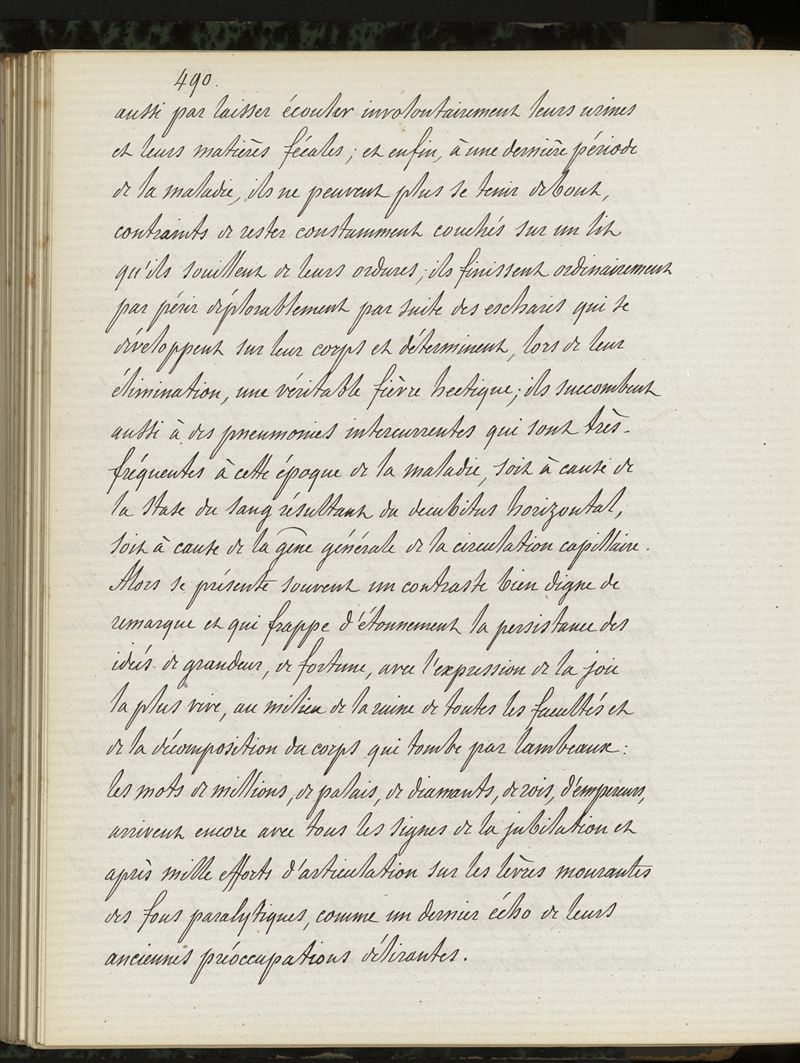 490.
aussi par laisser écouler involontairement leurs urines
et leurs matières fécales ; et enfin, à une dernière période
de la maladie, ils ne peuvent plus se tenir debout,
contraints de rester constamment couchés sur un lit
qu'ils souillent de leurs ordures ; ils finissent ordinairement
par périr déplorablement par suite des eschares qui se
développent sur leur corps et déterminent, lors de leur
élimination, une véritable fièvre hectique ; ils succombent
aussi à des pneumonies intercurrentes qui sont très-
fréquentes à cette époque de la maladie, soit à cause de
la stase du sang résultant du decubitus horizontal,
soit à cause de la gêne générale de la circulation capillaire.
Alors se présente souvent un contraste bien digne de
remarque et qui frappe d'étonnement la persistance des
idées de grandeur, de fortune, avec l'expression de la joie
la plus vive, au milieu de la ruine de toutes les facultés et
de la décomposition du corps qui tombe par lambeaux :
les mots de millions, de palais, de diamants, de rois, d'empereurs,
arrivent encore avec tous les signes de la jubilation et
après mille efforts d'articulation sur les lèvres mourantes
des fous paralytiques, comme un dernier écho de leurs
anciennes préoccupations délirantes.